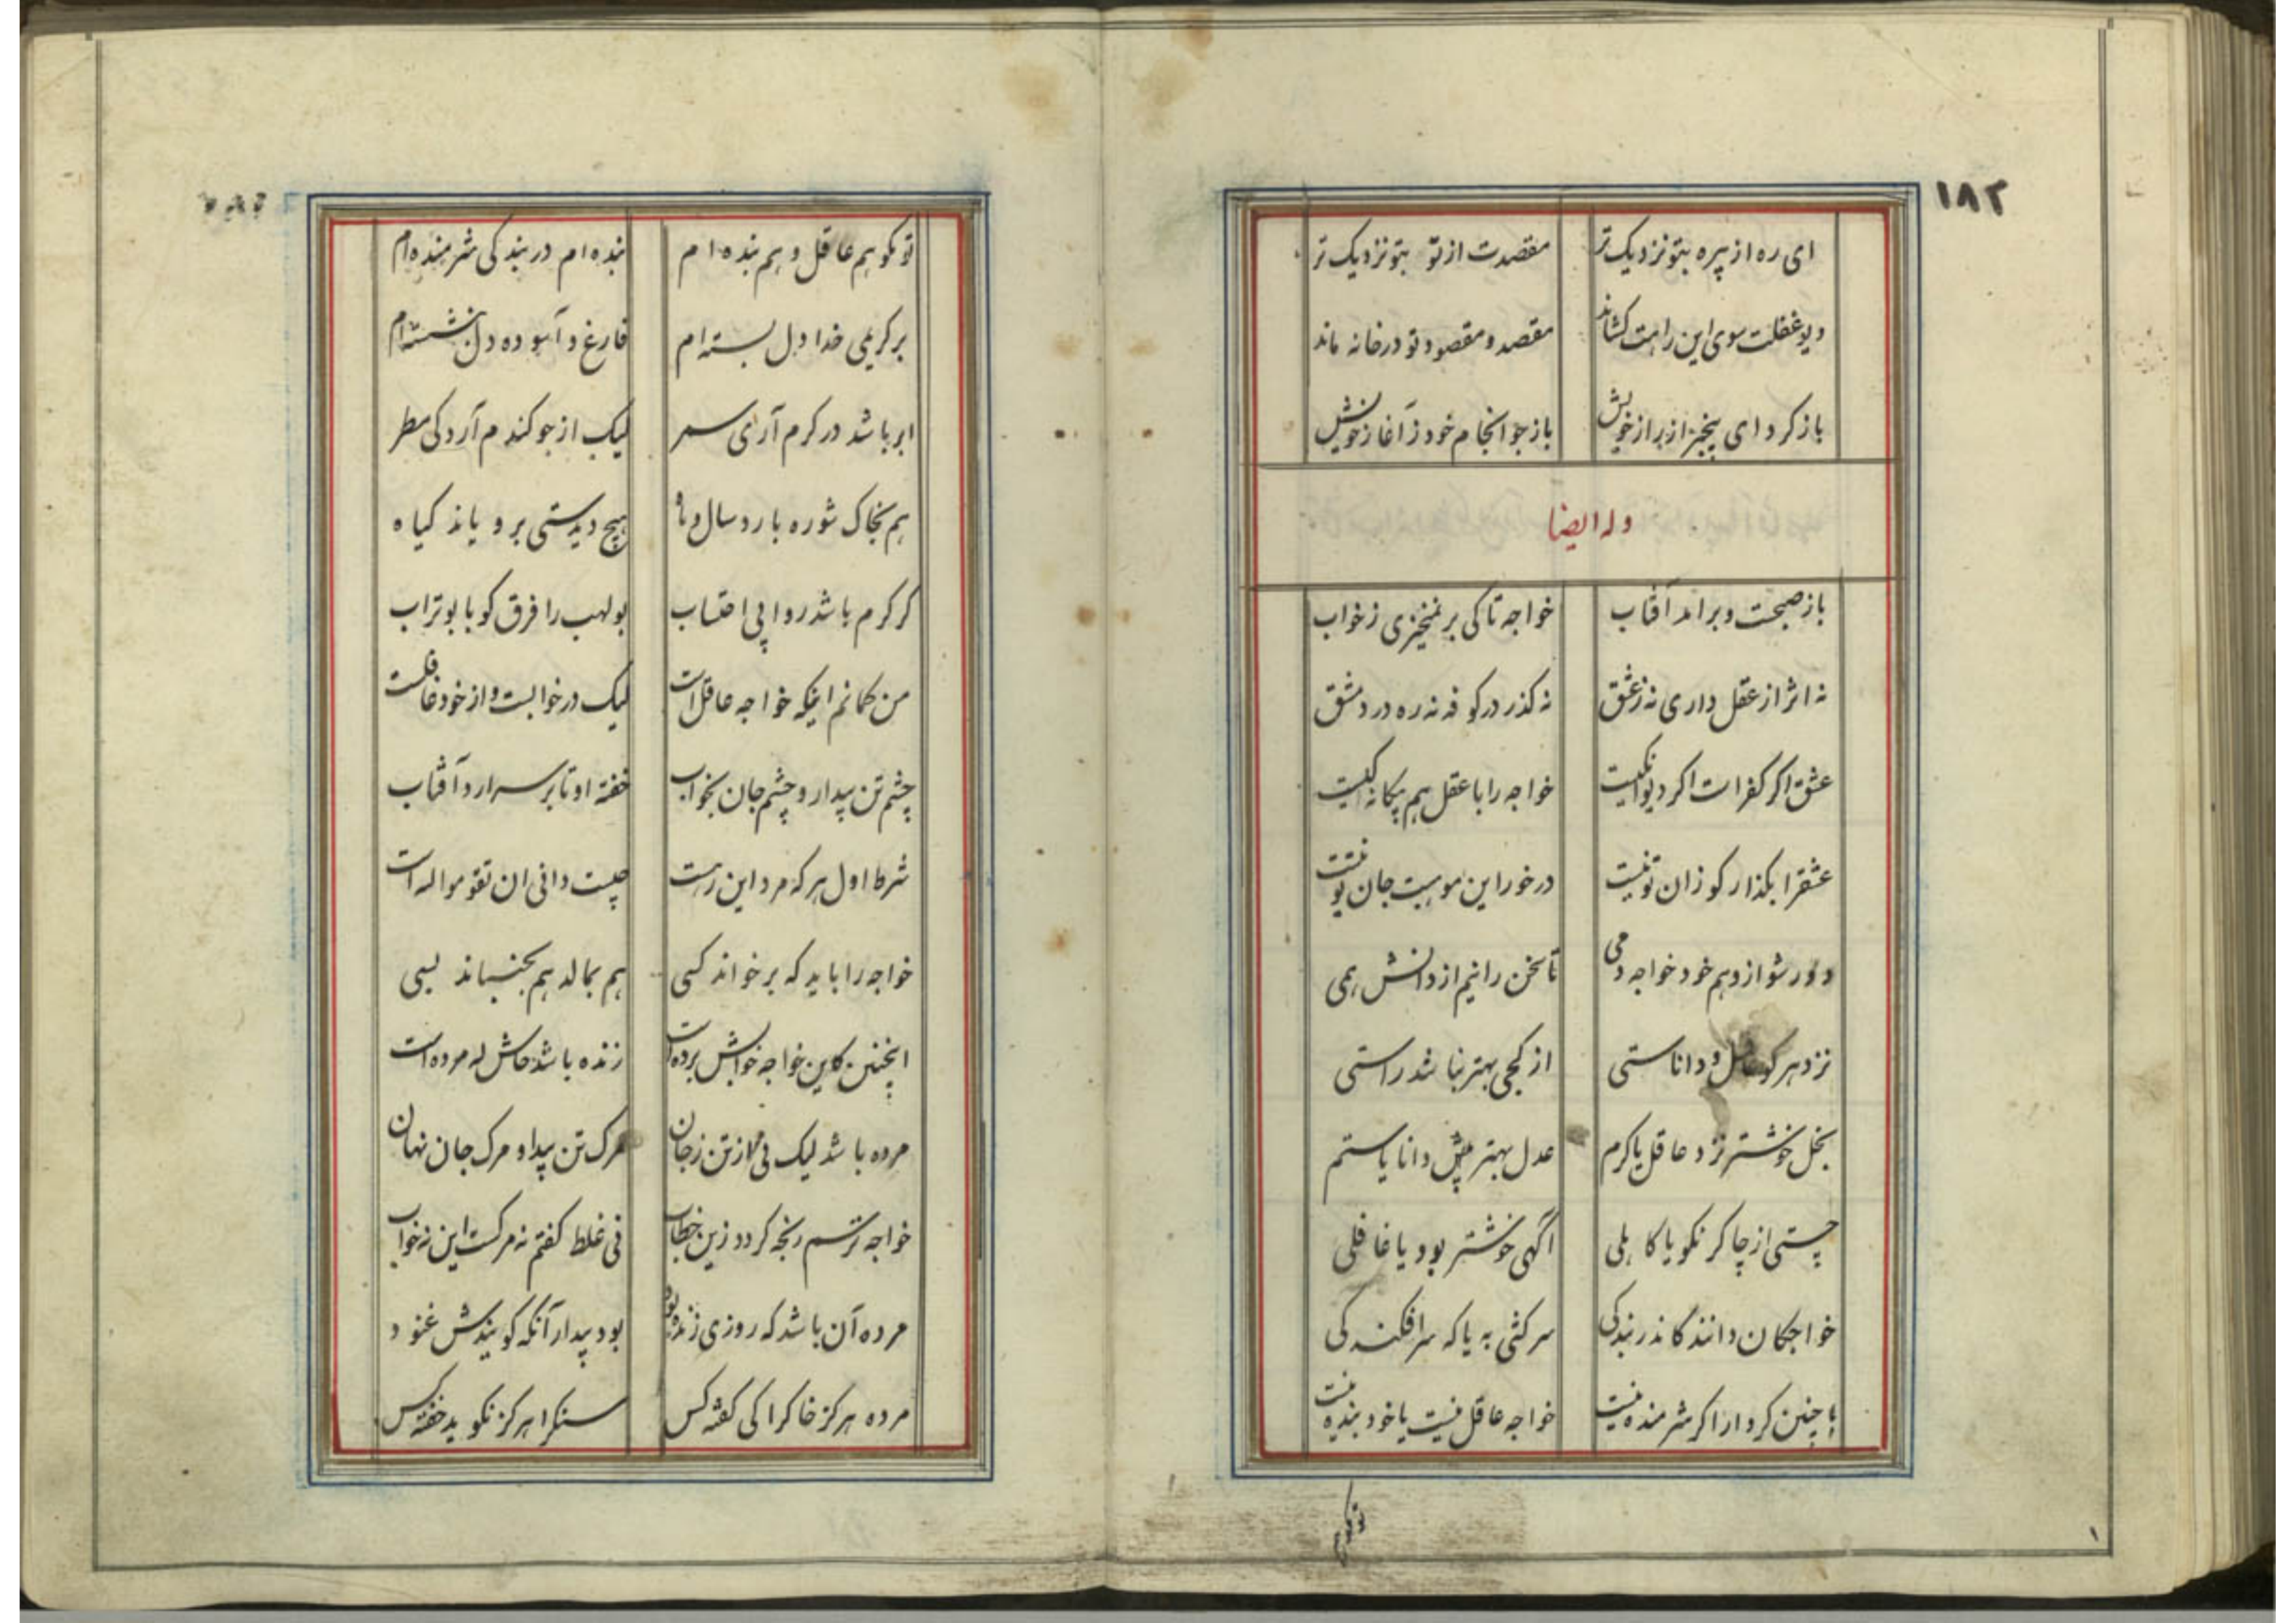 ۱۸۲
ای ره از پیره بتو نزدیک تر مقصدت از تو بتو نزدیک تر
دیو غفلت سوی این راهت کشاند مقصد و مقصود تو در خانه ماند
باز کرد ای بیخبر از راز خویش باز جو انجام خود ز آغاز خویش
وله ایضا
باز صبحت و برامد آفتاب خواجه تا کی برنمیخیزی ز خواب
نه اثر از عقل داری نه ز عشق نه کذر در کوفه نه ره در دمشق
عشق اکر کفر است اکر دیوانکیست خواجه را با عقل هم بیکانه کیست
عشقرا بکذار کو زان تو نیست در خور این موهبت جان تو نیست
دور شو از وهم خود خواجه دمی تا سخن رانیم از دانش همی
نزد هر کو عاقل و داناستی از کجی بهتر نباشد راستی
بخل خوشتر نزد عاقل یا کرم عدل بهتر پیش دانا یا ستم
چستی از چاکر نکو یا کاهلی آگهی خوشتر بود یا غافلی
خواجکان دانند کاندر بندکی سرکشی به یا که سرافکندکی
با چنین کردار اکر شرمنده نیست خواجه عاقل نیست یا خود بنده نیست
تو مکو هم
تو مکو هم عاقل و هم بنده ام بنده ام در بندکی شرمنده ام
بر کریمی خدا دل بسته ام فارغ و آسوده دل بنشسته ام
ابر باشد در کرم آرای سمر لیک از جو کندم آرد کی مطر
هم بخاک شوره بارد سال و ماه هیچ دیدستی برویاند کیاه
کر کرم باشد روا بی احتساب بولهب را فرق کو با بوتراب
من کمانم اینکه خواجه عاقل است لیک در خوابست و از خود غافلست
چشم تن بیدار و چشم جان بخواب خفته او تا بر سر ارد آفتاب
شرط اول هر که مرد این رهست چیست دانی ان تقوموا لله است
خواجه را باید که برخواند کسی هم بمالد هم بجنباند بسی
اینچنین کاین خواجه خوابش برده است زنده باشد حاش لله مرده است
مرده باشد لیک نی از تن ز جان مرک تن پیدا و مرک جان نهان
خواجه ترسم رنجه کردد زین خطاب نی غلط کفتم نه مرکست این نه خواب
مرده آن باشد که روزی زنده بود بود بیدار آنکه کویندش غنود
مرده هرکز خاکرا کی کفته کس سنکرا هرکز نکوید خفته کس